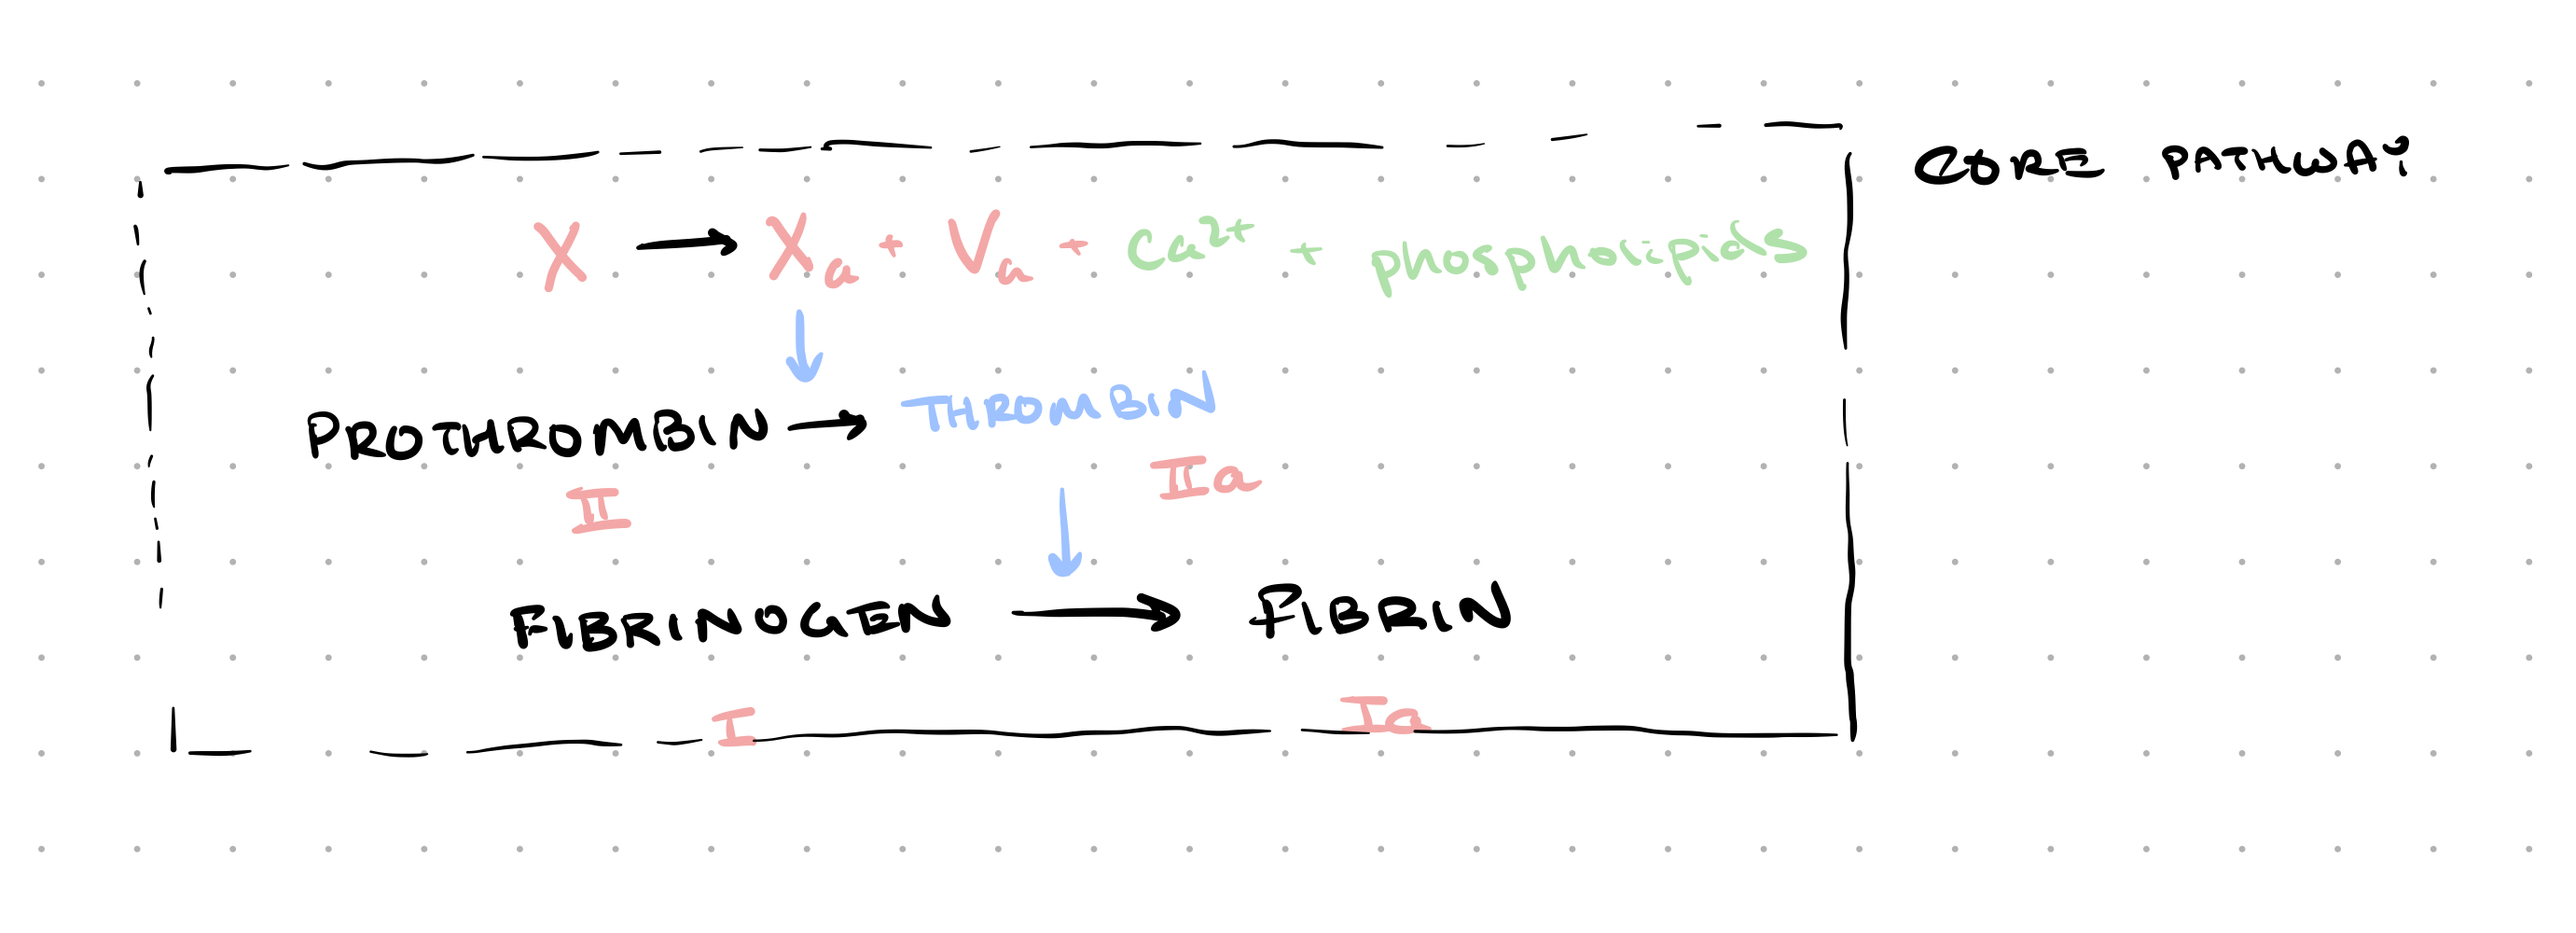 CORE PATHWAY
X → Xa + Va + Ca²⁺ + phospholipids
PROTHROMBIN → THROMBIN
II IIa
FIBRINOGEN → FIBRIN
I Ia